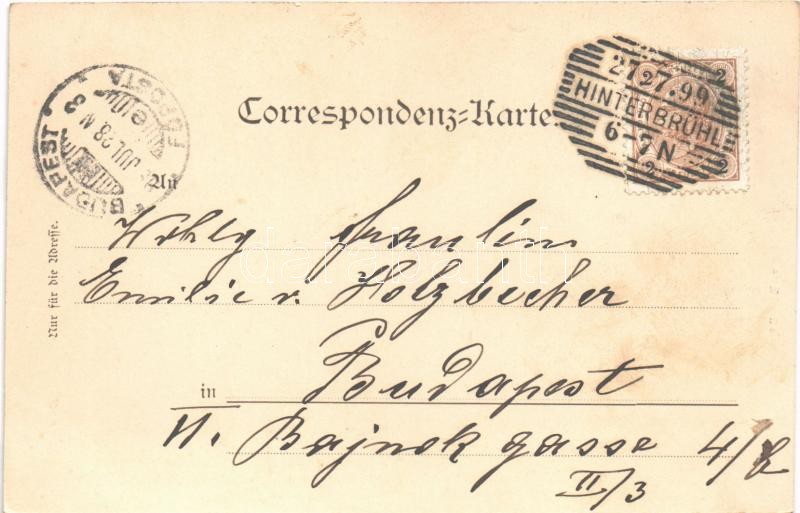 Correspondenz-Karte.
27.7.99
HINTERBRÜHL
6-7N
2 2
2 2
BUDAPEST
JUL 28 N
FŐPOSTA
An
Wohlg Fraulein
Emilie v. Holzbecher
in Budapest
II. Bajnok gasse 4/
II/3
Nur für die Adresse.
darabanth